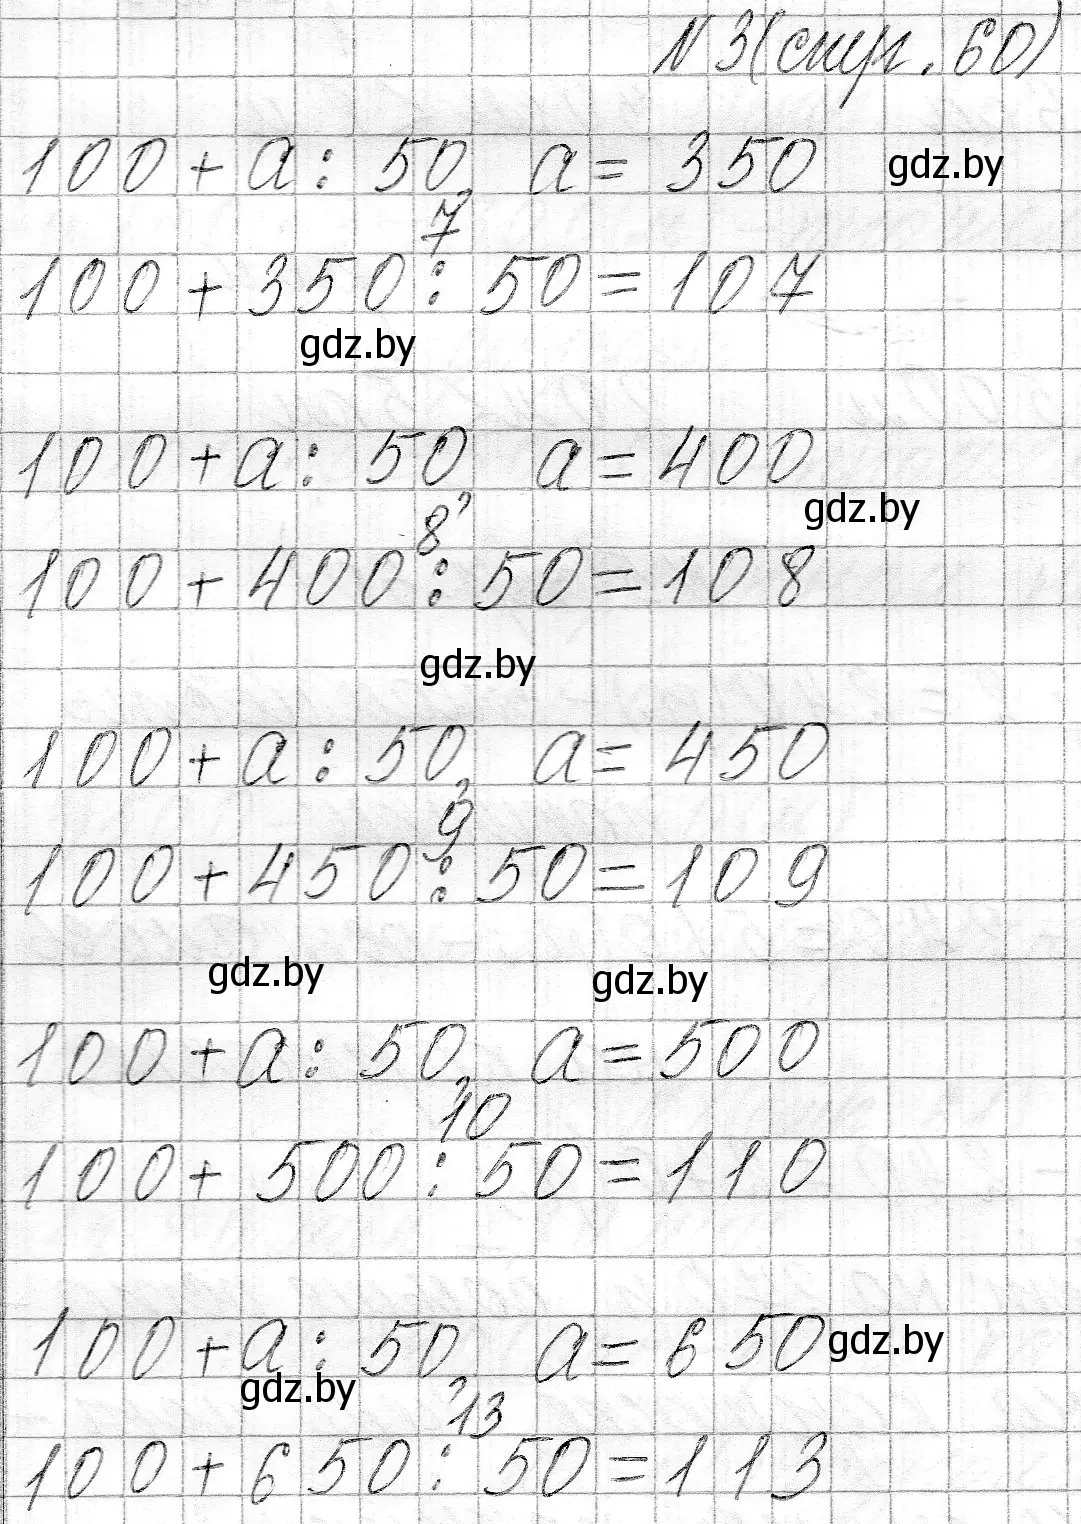 № 3 (стр. 60)
100 + a : 50, a = 350 gdz.by
7
100 + 350 : 50 = 107
gdz.by
100 + a : 50, a = 400
gdz.by
8
100 + 400 : 50 = 108
gdz.by
100 + a : 50, a = 450
9
100 + 450 : 50 = 109
gdz.by gdz.by
100 + a : 50, a = 500
10
100 + 500 : 50 = 110
100 + a : 50, a = 650 gdz.by
gdz.by
13
100 + 650 : 50 = 113